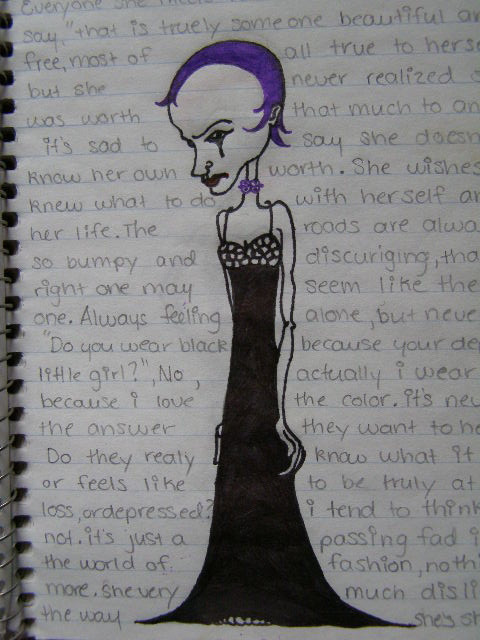 Everyone she meets
say, "that is truely someone beautiful an
free, most of all true to herse
but she never realized
was worth that much to an
it's sad to say she doesn
know her own worth. She wishes
knew what to do with herself an
her life. The roads are alwa
so bumpy and discuriging, tha
right one may seem like the
one. Always feeling alone, but neve
"Do you wear black because your dep
little girl?", No, actually i wear
because i love the color. it's nev
the answer they want to he
Do they realy know what it
or feels like to be truly at
loss, or depressed? i tend to think
not. it's just a passing fad i
the world of fashion, nothi
more. She very much disli
the way she's sh